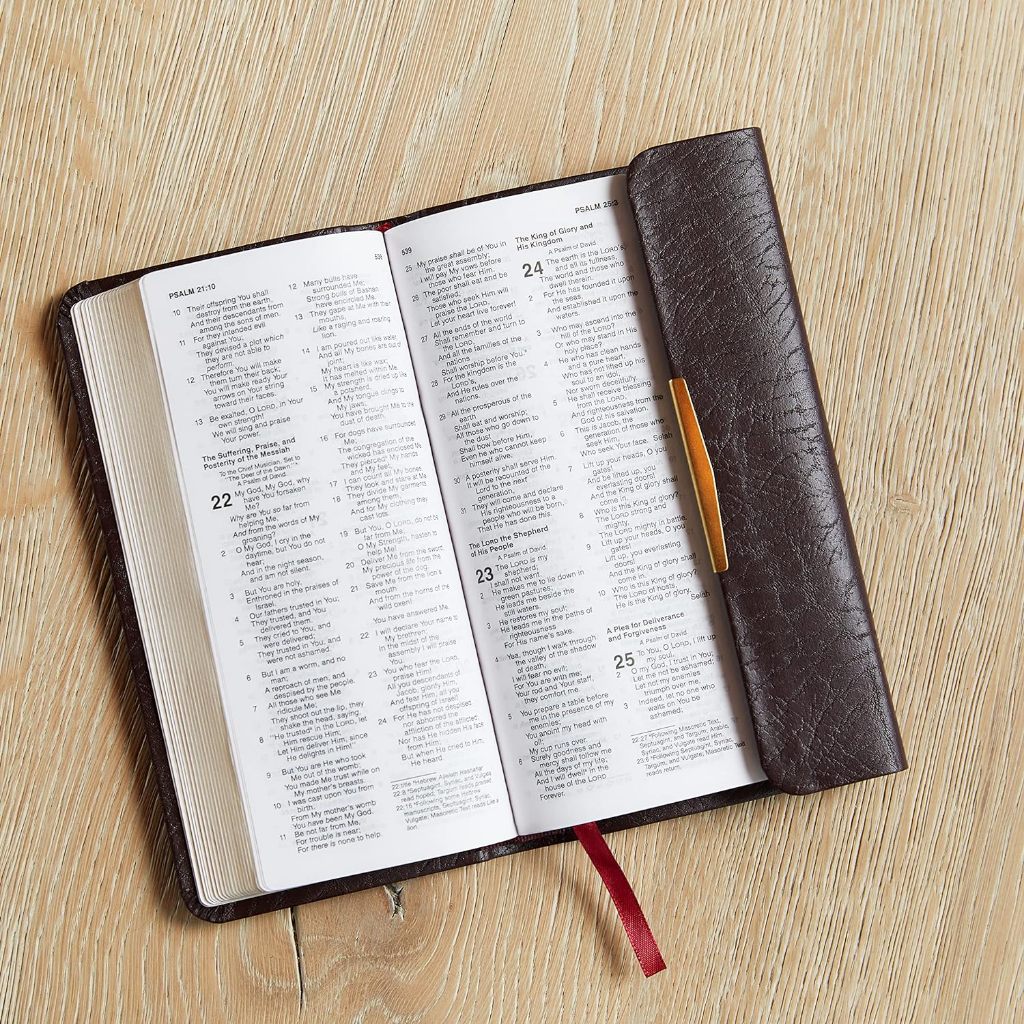 PSALM 21:10
538
10 Their offspring You shall
destroy from the earth,
And their descendants from
among the sons of men.
11 For they intended evil
against You;
They devised a plot which
they are not able to
perform.
12 Therefore You will make
them turn their back;
You will make ready Your
arrows on Your string
toward their faces.
13 Be exalted, O LORD, in Your
own strength!
We will sing and praise
Your power.
The Suffering, Praise, and
Posterity of the Messiah
To the Chief Musician. Set to
"The Deer of the Dawn."
A Psalm of David.
22 My God, My God, why
have You forsaken
Me?
Why are You so far from
helping Me,
And from the words of My
groaning?
2 O My God, I cry in the
daytime, but You do not
hear;
And in the night season,
and am not silent.
3 But You are holy,
Enthroned in the praises of
Israel.
4 Our fathers trusted in You;
They trusted, and You
delivered them.
5 They cried to You, and
were delivered;
They trusted in You, and
were not ashamed.
6 But I am a worm, and no
man;
A reproach of men, and
despised by the people.
7 All those who see Me
ridicule Me;
They shoot out the lip, they
shake the head, saying,
8 "He trusted in the LORD, let
Him rescue Him;
Let Him deliver Him, since
He delights in Him!"
9 But You are He who took
Me out of the womb;
You made Me trust while on
My mother's breasts.
10 I was cast upon You from
birth.
From My mother's womb
You have been My God.
11 Be not far from Me,
For trouble is near;
For there is none to help.
12 Many bulls have
surrounded Me;
Strong bulls of Bashan
have encircled Me.
13 They gape at Me with their
mouths,
Like a raging and roaring
lion.
14 I am poured out like water,
And all My bones are out of
joint;
My heart is like wax;
It has melted within Me.
15 My strength is dried up like
a potsherd,
And My tongue clings to
My jaws;
You have brought Me to the
dust of death.
16 For dogs have surrounded
Me;
The congregation of the
wicked has enclosed Me.
They pierced My hands
and My feet;
17 I can count all My bones.
They look and stare at Me.
18 They divide My garments
among them,
And for My clothing they
cast lots.
19 But You, O LORD, do not be
far from Me;
O My Strength, hasten to
help Me!
20 Deliver Me from the sword,
My precious life from the
power of the dog.
21 Save Me from the lion's
mouth
And from the horns of the
wild oxen!
You have answered Me.
22 I will declare Your name to
My brethren;
In the midst of the
assembly I will praise
You.
23 You who fear the LORD,
praise Him!
All you descendants of
Jacob, glorify Him,
And fear Him, all you
offspring of Israel!
24 For He has not despised
nor abhorred the
affliction of the afflicted;
Nor has He hidden His face
from Him;
But when He cried to Him,
He heard.
22:title Hebrew Aijeleth Hashahar
22:8 Septuagint, Syriac, and Vulgate
read hoped; Targum reads praised.
22:16 Following some Hebrew
manuscripts, Septuagint, Syriac,
Vulgate; Masoretic Text reads Like a
lion.
539
PSALM 25:3
25 My praise shall be of You in
the great assembly;
I will pay My vows before
those who fear Him.
26 The poor shall eat and be
satisfied;
Those who seek Him will
praise the LORD.
Let your heart live forever!
27 All the ends of the world
Shall remember and turn to
the LORD,
And all the families of the
nations
Shall worship before You.
28 For the kingdom is the
LORD's,
And He rules over the
nations.
29 All the prosperous of the
earth
Shall eat and worship;
All those who go down to
the dust
Shall bow before Him,
Even he who cannot keep
himself alive.
30 A posterity shall serve Him.
It will be recounted of the
Lord to the next
generation,
31 They will come and declare
His righteousness to a
people who will be born,
That He has done this.
The LORD the Shepherd
of His People
A Psalm of David.
23 The LORD is my
shepherd;
I shall not want.
2 He makes me to lie down in
green pastures;
He leads me beside the
still waters.
3 He restores my soul;
He leads me in the paths of
righteousness
For His name's sake.
4 Yea, though I walk through
the valley of the shadow
of death,
I will fear no evil;
For You are with me;
Your rod and Your staff,
they comfort me.
5 You prepare a table before
me in the presence of my
enemies;
You anoint my head with
oil;
My cup runs over.
6 Surely goodness and
mercy shall follow me
All the days of my life;
And I will dwell in the
house of the LORD
Forever.
The King of Glory and
His Kingdom
A Psalm of David.
24 The earth is the LORD's,
and all its fullness,
The world and those who
dwell therein.
2 For He has founded it upon
the seas,
And established it upon the
waters.
3 Who may ascend into the
hill of the LORD?
Or who may stand in His
holy place?
4 He who has clean hands
and a pure heart,
Who has not lifted up his
soul to an idol,
Nor sworn deceitfully.
5 He shall receive blessing
from the LORD,
And righteousness from the
God of his salvation.
6 This is Jacob, the
generation of those who
seek Him,
Who seek Your face. Selah
7 Lift up your heads, O you
gates!
And be lifted up, you
everlasting doors!
And the King of glory shall
come in.
8 Who is this King of glory?
The LORD strong and
mighty,
The LORD mighty in battle.
9 Lift up your heads, O you
gates!
Lift up, you everlasting
doors!
And the King of glory shall
come in.
10 Who is this King of glory?
The LORD of hosts,
He is the King of glory.
Selah
A Plea for Deliverance
and Forgiveness
A Psalm of David.
25 To You, O LORD, I lift up
my soul.
2 O my God, I trust in You;
Let me not be ashamed;
Let not my enemies
triumph over me.
3 Indeed, let no one who
waits on You be
ashamed;
22:27 Following Masoretic Text,
Septuagint, and Targum; Arabic,
Syriac, and Vulgate read Him.
23:6 Following Septuagint, Syriac,
Targum, and Vulgate; Masoretic Text
reads return.